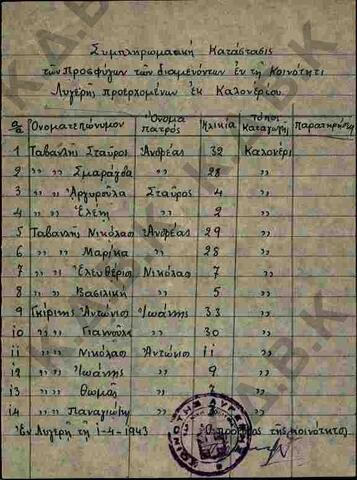 Συμπληρωματική Κατάστασις
τῶν Προσφύγων τῶν διαμενόντων ἐν τῇ Κοινότητι
Λυγερῆς προερχομένων ἐκ Καλονερίου.
α/α Ὀνοματεπώνυμον Ὄνομα πατρός Ἡλικία Τόπος καταγωγῆς παρατηρήσεις
1 Ταβανλῆς Σταῦρος Ἀνδρέας 32 Καλονέρι
2 〃 〃 Σμαράγδα 28 〃
3 〃 〃 Ἀργυρούλα Σταῦρος 4 〃
4 〃 〃 Ἑλένη 〃 2 〃
5 Ταβανλῆς Νικόλαος Ἀνδρέας 29 〃
6 〃 〃 Μαρίκα 〃 28 〃
7 〃 〃 Ἐλευθέριος Νικόλαος 7 〃
8 〃 〃 Βασιλική 〃 5 〃
9 Γκίρινης Ἀντώνιος Ἰωάννης 33 〃
10 〃 〃 Γιαννούλα 30 〃
11 〃 〃 Νικόλαος Ἀντώνιος 11 〃
12 〃 〃 Ἰωάννης 〃 9 〃
13 〃 〃 Θωμᾶς 〃 7 〃
14 〃 〃 Παναγιώτης 〃
Ἐν Λυγερῇ τῇ 1-4-1943 Ὁ πρόεδρος τῆς κοινότητος
Κ.Δ.Β.Κ